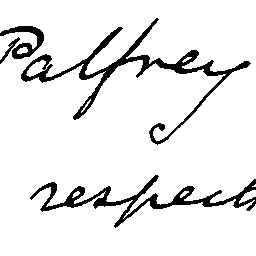 Palfrey
respect